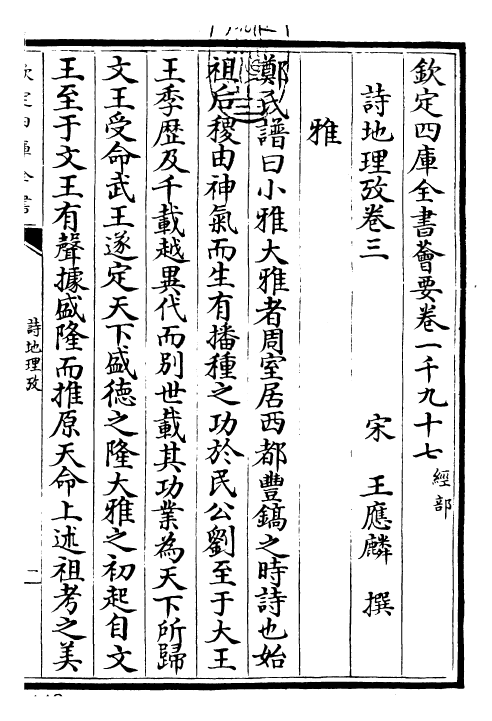 欽定四庫全書薈要卷一千九十七 經部
詩地理攷卷三
宋 王應麟 撰
雅
鄭氏譜曰小雅大雅者周室居西都豐鎬之時詩也始
祖后稷由神氣而生有播種之功於民公劉至于大王
王季歴及千載越異代而別世載其功業為天下所歸
文王受命武王遂定天下盛德之隆大雅之初起自文
王至于文王有聲據盛隆而推原天命上述祖考之美
欽定四庫全書
詩地理攷
一